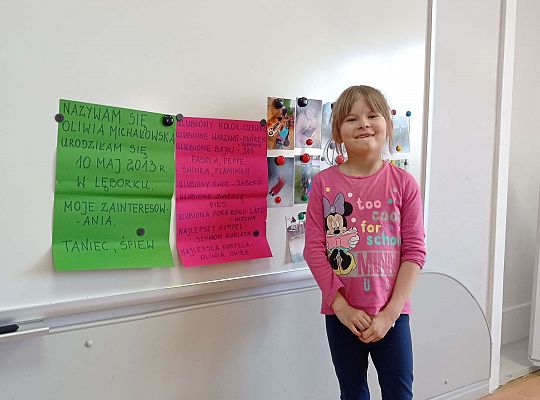 NAZYWAM SIĘ
OLIWIA MICHAŁOWSKA
URODZIŁAM SIĘ
10 MAJ 2013
W LĘBORKU.
MOJE ZAINTERESOW-
-ANIA.
TANIEC, ŚPIEW
ULUBIONY KOLOR-CZERWONY
ULUBIONE WARZYWO-OGÓREK
PAPRYKA
ULUBIONE BAJKI-JAŚ
FASOLA, PEPPE,
ŚWINKA, FLAMINGII
ULUBIONY OWOC-JABŁKO
ULUBIONE ZWIERZĘ-
PIES
ULUBIONA PORA ROKU-LATO
I WIOSNA
NAJLEPSZY KUMPEL-
SZYMON KUKUŁKA
NAJLEPSZA KUMPELA-
OLIWIA
too
cool
for
school